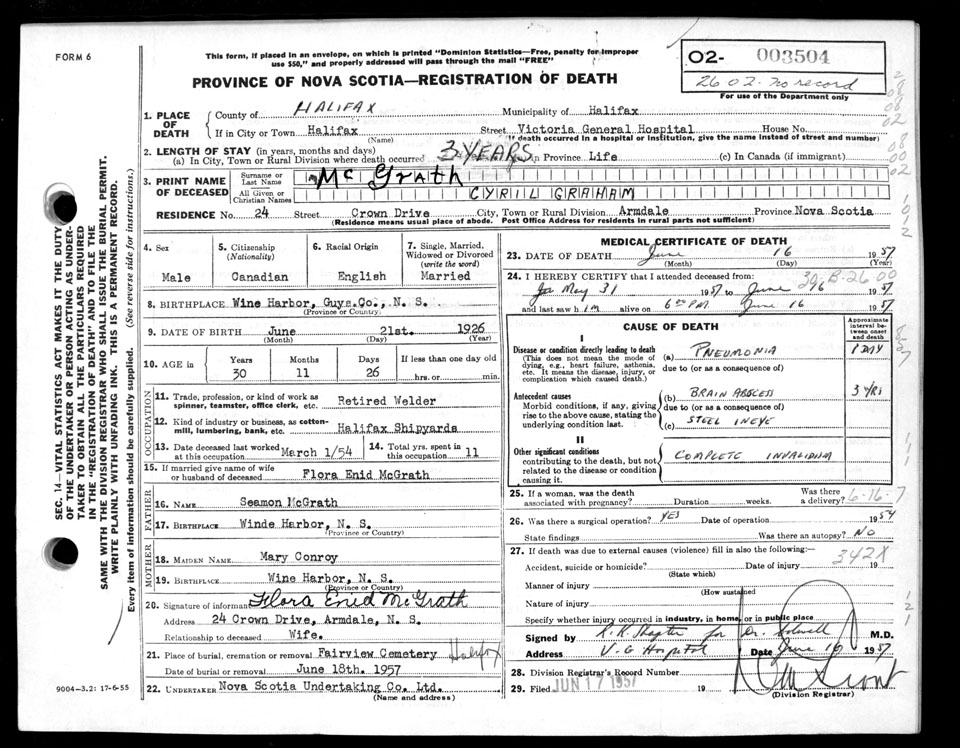 FORM 6
This form, if placed in an envelope, on which is printed "Dominion Statistics—Free, penalty for improper
use $50," and properly addressed will pass through the mail "FREE"
PROVINCE OF NOVA SCOTIA—REGISTRATION OF DEATH
O2- 003504
2602. no record
For use of the Department only
1. PLACE OF DEATH
County of HALIFAX Municipality of Halifax
If in City or Town Halifax Street Victoria General Hospital House No.
(Name) (If death occurred in a hospital or institution, give the name instead of street and number)
2. LENGTH OF STAY (in years, months and days)
(a) In City, Town or Rural Division where death occurred 3 YEARS in Province Life (c) In Canada (if immigrant)
3. PRINT NAME OF DECEASED
Surname or Last Name Mc Grath
All Given or Christian Names CYRIL GRAHAM
RESIDENCE No. 24 Street Crown Drive City, Town or Rural Division Armdale Province Nova Scotia
(Residence means usual place of abode. Post Office Address for residents in rural parts not sufficient)
4. Sex
Male
5. Citizenship (Nationality)
Canadian
6. Racial Origin
English
7. Single, Married, Widowed or Divorced (write the word)
Married
8. BIRTHPLACE Wine Harbor, Guys.Co., N. S.
(Province or Country)
9. DATE OF BIRTH June 21st. 1926
(Month) (Day) (Year)
10. AGE in Years Months Days If less than one day old
30 11 26 hrs. or min.
OCCUPATION
11. Trade, profession, or kind of work as spinner, teamster, office clerk, etc. Retired Welder
12. Kind of industry or business, as cotton-mill, lumbering, bank, etc. Halifax Shipyards
13. Date deceased last worked at this occupation March 1/54
14. Total yrs. spent in this occupation 11
15. If married give name of wife or husband of deceased Flora Enid McGrath
FATHER
16. NAME Seamon McGrath
17. BIRTHPLACE Winde Harbor, N. S.
(Province or Country)
MOTHER
18. MAIDEN NAME Mary Conroy
19. BIRTHPLACE Wine Harbor, N. S.
(Province or Country)
20. Signature of informant Flora Enid McGrath
Address 24 Crown Drive, Armdale, N. S.
Relationship to deceased Wife.
21. Place of burial, cremation or removal Fairview Cemetery Halifax
Date of burial or removal June 18th. 1957
22. UNDERTAKER Nova Scotia Undertaking Co. Ltd.
(Name and address)
9004—3.2: 17-6-55
MEDICAL CERTIFICATE OF DEATH
23. DATE OF DEATH June 16 1957
(Month) (Day) (Year)
24. I HEREBY CERTIFY that I attended deceased from:
May 31 1957 to June 16 1957
and last saw him alive on 6:00 P.M. June 16 1957
CAUSE OF DEATH
Approximate interval between onset and death
I
Disease or condition directly leading to death (a) PNEUMONIA 1 DAY
(This does not mean the mode of dying, e.g., heart failure, asthenia, etc. It means the disease, injury, or complication which caused death.)
due to (or as a consequence of)
Antecedent causes (b) BRAIN ABSCESS 3 YRS
Morbid conditions, if any, giving rise to the above cause, stating the underlying condition last.
due to (or as a consequence of)
(c) STEEL IN EYE
II
Other significant conditions COMPLETE INVALIDISM
contributing to the death, but not related to the disease or condition causing it.
25. If a woman, was the death associated with pregnancy? Duration weeks. Was there a delivery?
6-16-7
26. Was there a surgical operation? YES Date of operation 1954
State findings Was there an autopsy? NO
27. If death was due to external causes (violence) fill in also the following:—
342X
Accident, suicide or homicide? Date of injury 19
(State which)
Manner of injury
(How sustained)
Nature of injury
Specify whether injury occurred in industry, in home, or in public place
Signed by for Dr. M.D.
Address V. G Hospital Date June 16 1957
28. Division Registrar's Record Number
29. Filed JUN 17 1957 19
(Division Registrar)
SEC. 14—VITAL STATISTICS ACT MAKES IT THE DUTY
OF THE UNDERTAKER OR PERSON ACTING AS UNDER-
TAKER TO OBTAIN ALL THE PARTICULARS REQUIRED
IN THE "REGISTRATION OF DEATH" AND TO FILE THE
SAME WITH THE DIVISION REGISTRAR WHO SHALL ISSUE THE BURIAL PERMIT.
WRITE PLAINLY WITH UNFADING INK. THIS IS A PERMANENT RECORD.
Every item of information should be carefully supplied. (See reverse side for instructions.)